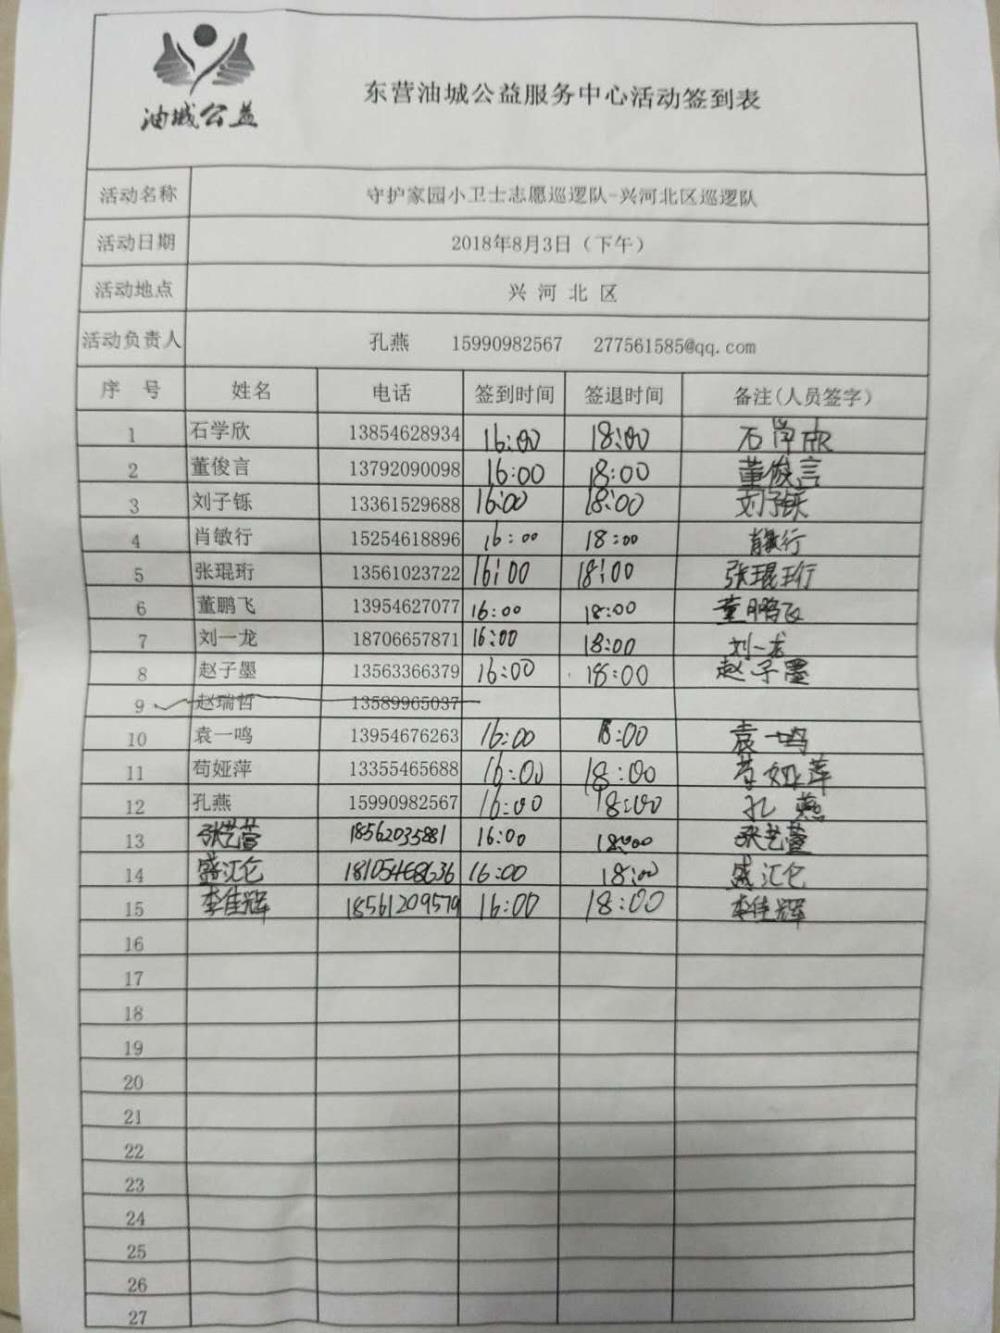 油城公益
东营油城公益服务中心活动签到表
活动名称 守护家园小卫士志愿巡逻队-兴河北区巡逻队
活动日期 2018年8月3日（下午）
活动地点 兴 河 北 区
活动负责人 孔燕 15990982567 277561585@qq.com
序 号 姓名 电话 签到时间 签退时间 备注(人员签字)
1 石学欣 13854628934 16:00 18:00 石学欣
2 董俊言 13792090098 16:00 18:00 董俊言
3 刘子铄 13361529688 16:00 18:00 刘子铄
4 肖敏行 15254618896 16:00 18:00 肖敏行
5 张琨珩 13561023722 16:00 18:00 张琨珩
6 董鹏飞 13954627077 16:00 18:00 董鹏飞
7 刘一龙 18706657871 16:00 18:00 刘一龙
8 赵子墨 13563366379 16:00 18:00 赵子墨
9 赵瑞哲 13589965037
10 袁一鸣 13954676263 16:00 18:00 袁一鸣
11 苟娅萍 13355465688 16:00 18:00 苟娅萍
12 孔燕 15990982567 16:00 18:00 孔燕
13 张艺萱 18562035881 16:00 18:00 张艺萱
14 盛汇仑 18105468636 16:00 18:00 盛汇仑
15 李佳辉 18561209579 16:00 18:00 李佳辉
16
17
18
19
20
21
22
23
24
25
26
27